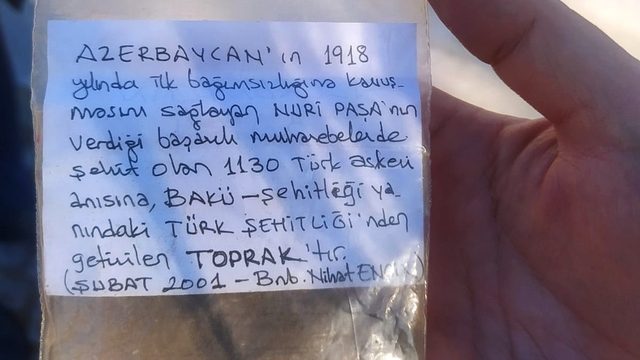 AZERBAYCAN'ın 1918
yılında ilk bağımsızlığına kavuş-
masını sağlayan NURİ PAŞA'nın
verdiği başarılı muharebelerde
şehit olan 1130 Türk askeri
anısına, BAKÜ-Şehitliği ya-
nındaki TÜRK ŞEHİTLİĞİ'nden
getirilen TOPRAK'tır.
(ŞUBAT 2001 - Bnb. Nihat